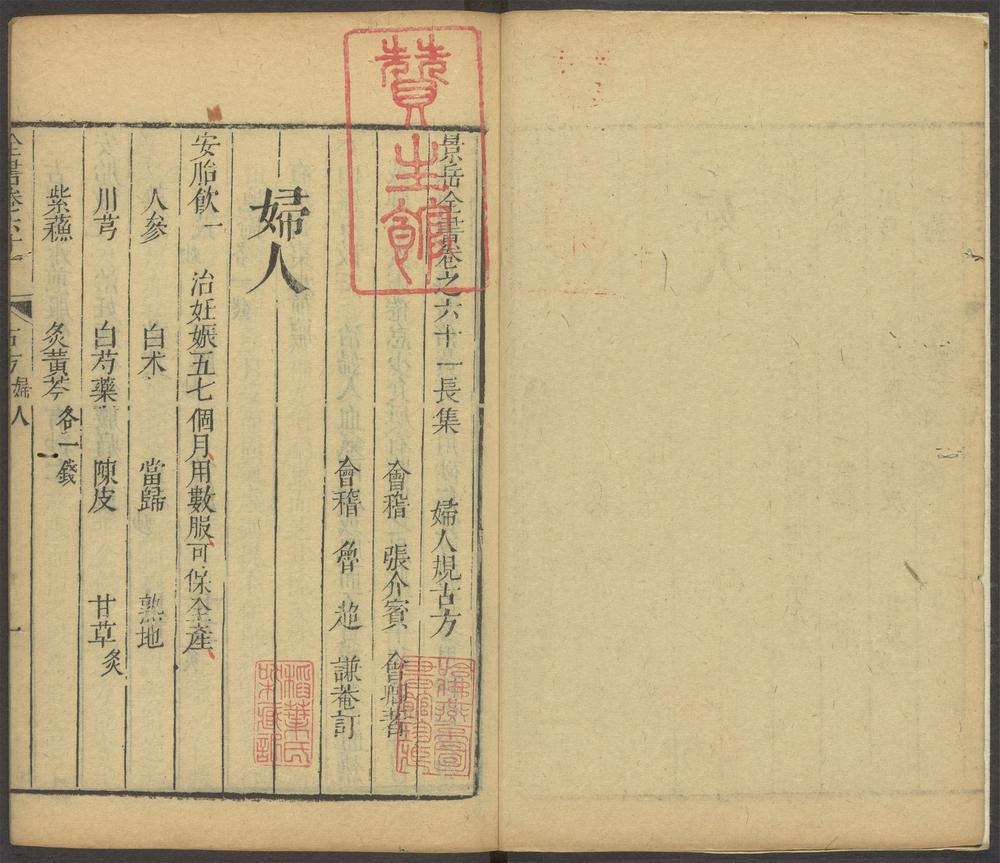 景岳全書卷之六十一長集 婦人規古方
會稽 張介賓 會卿著
會稽 魯超 謙菴訂
婦人
安胎飲一 治妊娠五七個月用數服可保全產
人參 白术 當歸 熟地
川芎 白芍藥 陳皮 甘草炙
紫蘇 炙黃芩各一錢
全書卷六十一 古方婦人 一
贊生館
稻葉氏